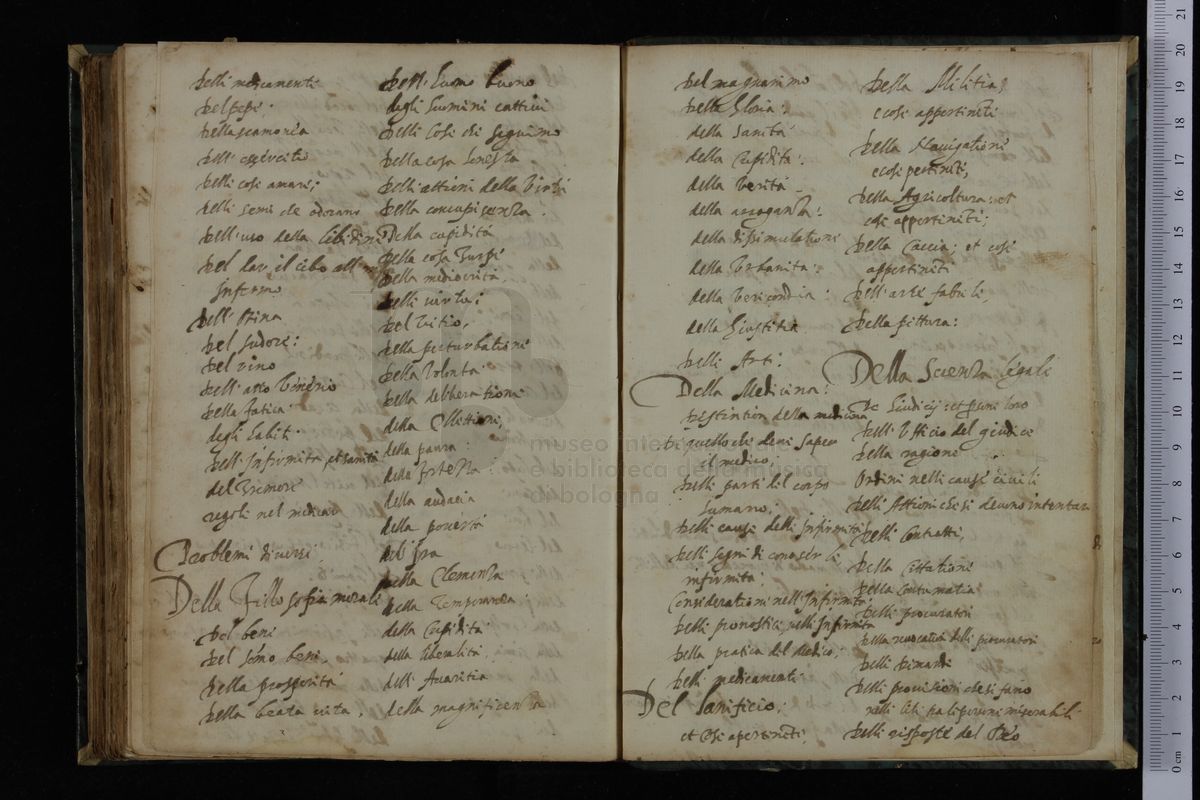 delli medicamenti
del pepe:
della scamonea
dell' essercitio
delli cose amare;
delli semi che odorano
dell' uso della libidine
del dar il cibo all'
Infermo
dell' Orina
del sudore:
del vino
dell' atto Venereo
della fatica
degli habiti
dell' Infirmità et sanità
del Tremore
regole nel medicar
Problemi diversi
Della Fillosofia morale
del beni
del somo beni,
della prosperità
della beata vita.
dell' huomo buono
degli huomini cattivi
delli Cose che seguimo
della cosa honesta
delli attioni della Virtù
della concupiscenza.
Della cupidità
della cosa Turpe
della mediocrità
delli virtù:
del Vitio,
della perturbatione
della Volontà
della deliberatione
della Ellettione,
della paura
della fortezza
della audacia
della povertà
dell' Ira
della Clemenza
della Temperanza:
della Cupidità
della liberalità
dell' Avaritia
della magnificenza
del magnanimo
della Gloria:
della Sanità
della Cupidità:
della Verità
della arroganza:
della dissimulatione
della Urbanità:
della Verecondia:
della Giustitia
delli Arti:
Della Medicina:
Destintion della medicina
Di quello che deve saper
il medico:
delli parti del corpo
humano,
delli cause delli Infirmità
delli segni di conoscer le
infirmità:
Considerationi nell' Infirmità
delli pronostici nelli Infirmità
della pratica del Medico;
delli medicamenti
Del lanificio;
et cose apertinenti,
della Militia,
e cose appertinenti
della Navigatione
e cose pertinenti,
della Agricoltura: et
cose appertinenti;
della Caccia: et cose
appertinenti
dell' arte fabrile,
della pittura:
Della Scienza legale
De Giudicij et parti loro
dell' Ufficio del giudice
della ragione
Ordini nelli cause civili
delli Attioni che si devono intentar
delli Contratti,
della Cittatione
della Contumatia
delli procuratori
della revocation delli procuratori
delli Dimandi
delli provisioni che si fano
nelli liti per le persone miserabili
delli risposte del Reo
museo internazionale
e biblioteca della musica
di bologna